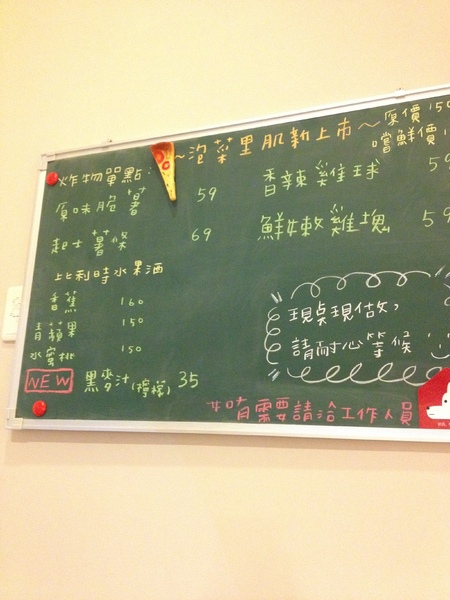 ~泡菜里肌新上市~原價150
嚐鮮價
炸物單點:
原味脆薯 59
起士薯條 69
香辣雞球 59
鮮嫩雞塊 59
比利時水果酒
香蕉 160
青蘋果 150
水蜜桃 150
NEW 黑麥汁(檸檬) 35
現點現做,
請耐心等候
如有需要請洽工作人員